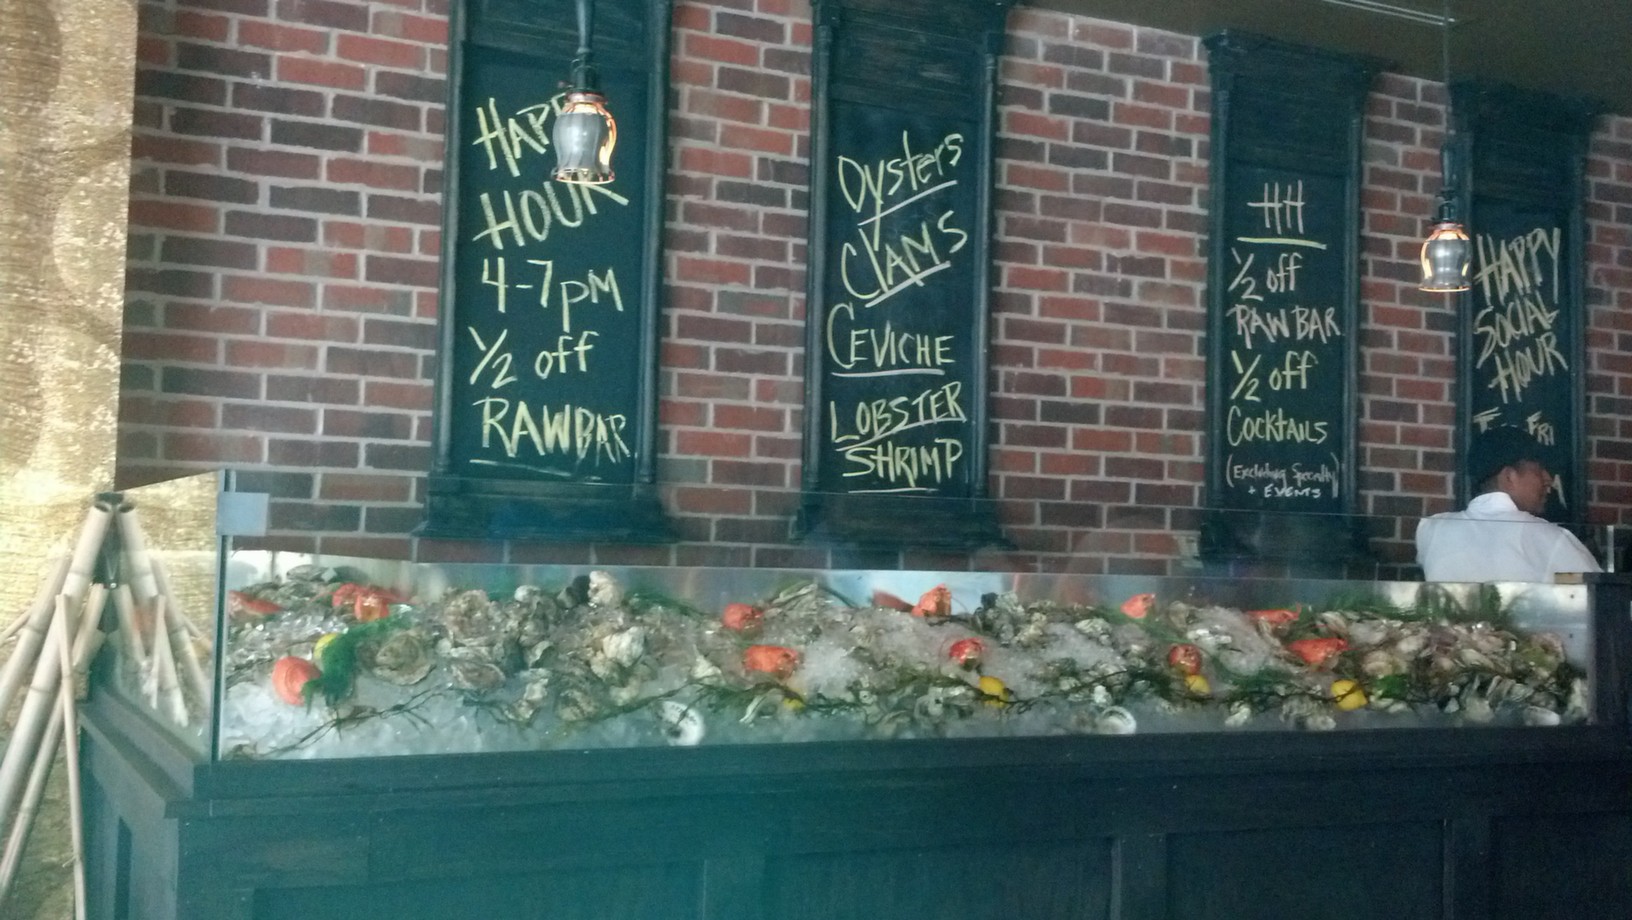 HAPPY
HOUR
4-7pm
1/2 off
RAWBAR
Oysters
CLAMS
CEVICHE
LOBSTER
SHRIMP
HH
1/2 off
RAW BAR
1/2 off
Cocktails
(Excluding Specialty
+ EVENTS)
HAPPY
SOCIAL
HOUR
FRI